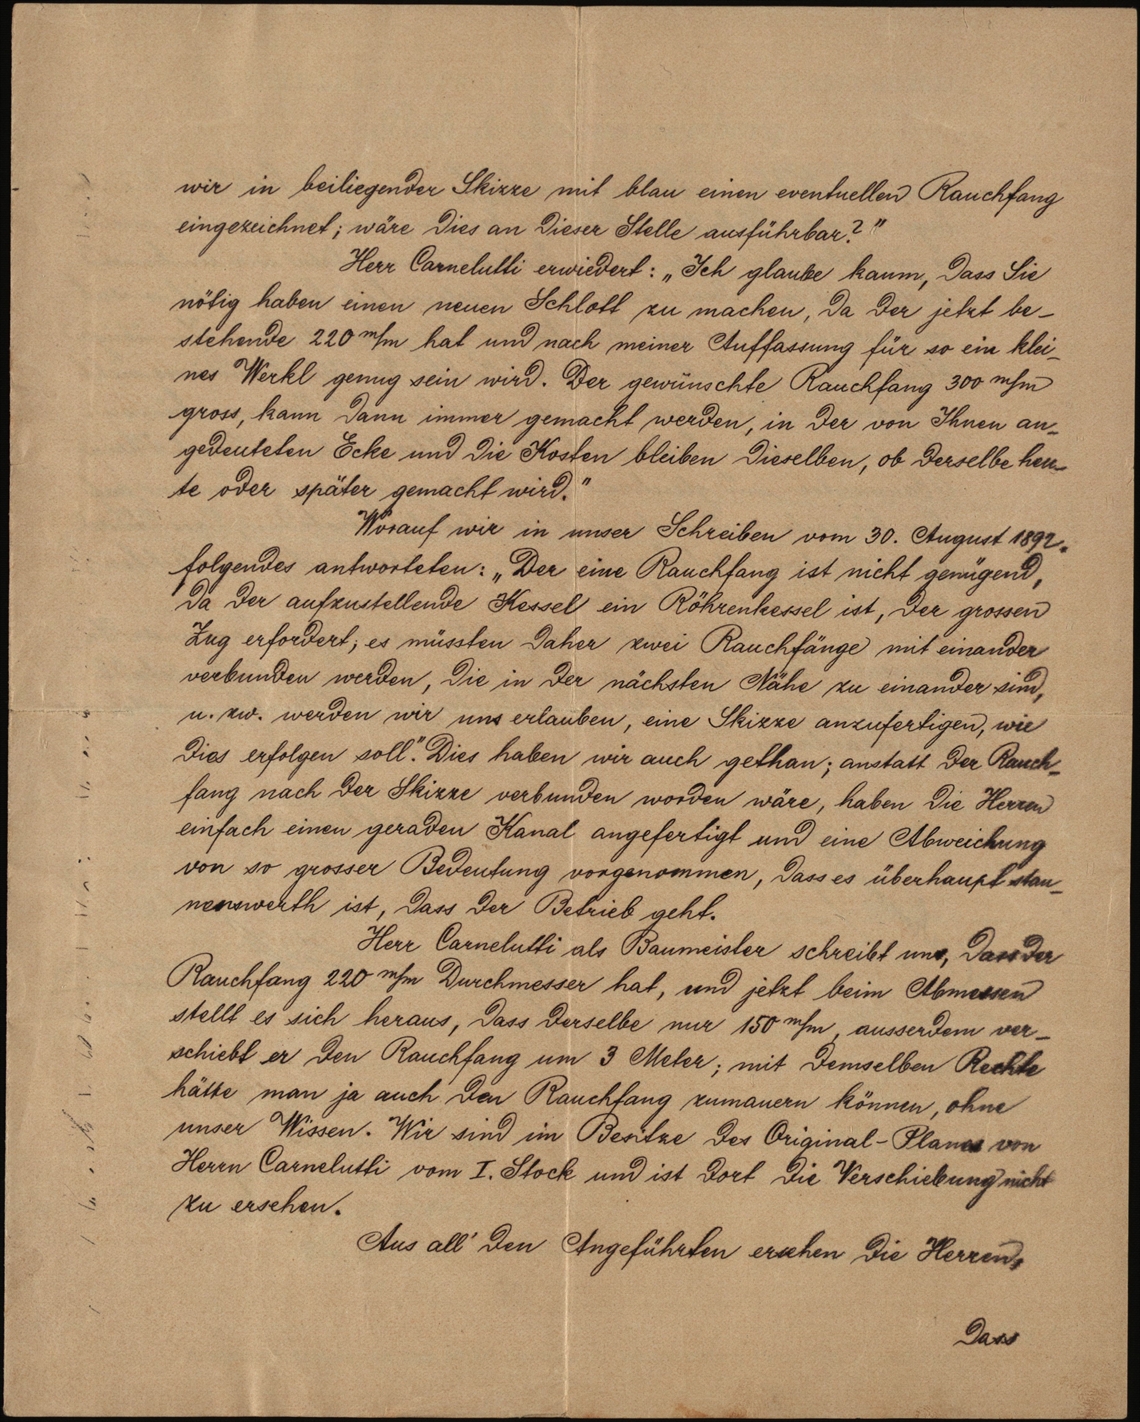 wir in beiliegender Skizze mit blau einen eventuellen Rauchfang
eingezeichnet; wäre dies an dieser Stelle ausführbar?"
Herr Carnelutti erwiedert: „Ich glaube kaum, dass Sie
nötig haben einen neuen Schlott zu machen, da der jetzt be-
stehende 220 m/m hat und nach meiner Auffassung für so ein klei-
nes Werkl genug sein wird. Der gewünschte Rauchfang 300 m/m
gross, kann dann immer gemacht werden, in der von Ihnen an-
gedeuteten Ecke und die Kosten bleiben dieselben, ob derselbe heu-
te oder später gemacht wird."
Worauf wir in unser Schreiben vom 30. August 1892.
folgendes antworteten: „Der eine Rauchfang ist nicht genügend,
da der aufzustellende Kessel ein Röhrenkessel ist, der grossen
Zug erfordert; es müssten daher zwei Rauchfänge mit einander
verbunden werden, die in der nächsten Nähe zu einander sind,
u. zw. werden wir uns erlauben, eine Skizze anzufertigen, wie
dies erfolgen soll." Dies haben wir auch gethan; anstatt der Rauch-
fang nach der Skizze verbunden worden wäre, haben die Herren
einfach einen geraden Kanal angefertigt und eine Abweichung
von so grosser Bedeutung vorgenommen, dass es überhaupt stau-
nenswerth ist, dass der Betrieb geht.
Herr Carnelutti als Baumeister schreibt uns, dass der
Rauchfang 220 m/m Durchmesser hat, und jetzt beim Abmessen
stellt es sich heraus, dass derselbe nur 150 m/m, ausserdem ver-
schiebt er den Rauchfang um 3 Meter; mit demselben Rechte
hätte man ja auch den Rauchfang zumauern können, ohne
unser Wissen. Wir sind im Besitze des Original-Planes von
Herrn Carnelutti vom I. Stock und ist dort die Verschiebung nicht
zu ersehen.
Aus all' den Angeführten ersehen die Herren,
dass